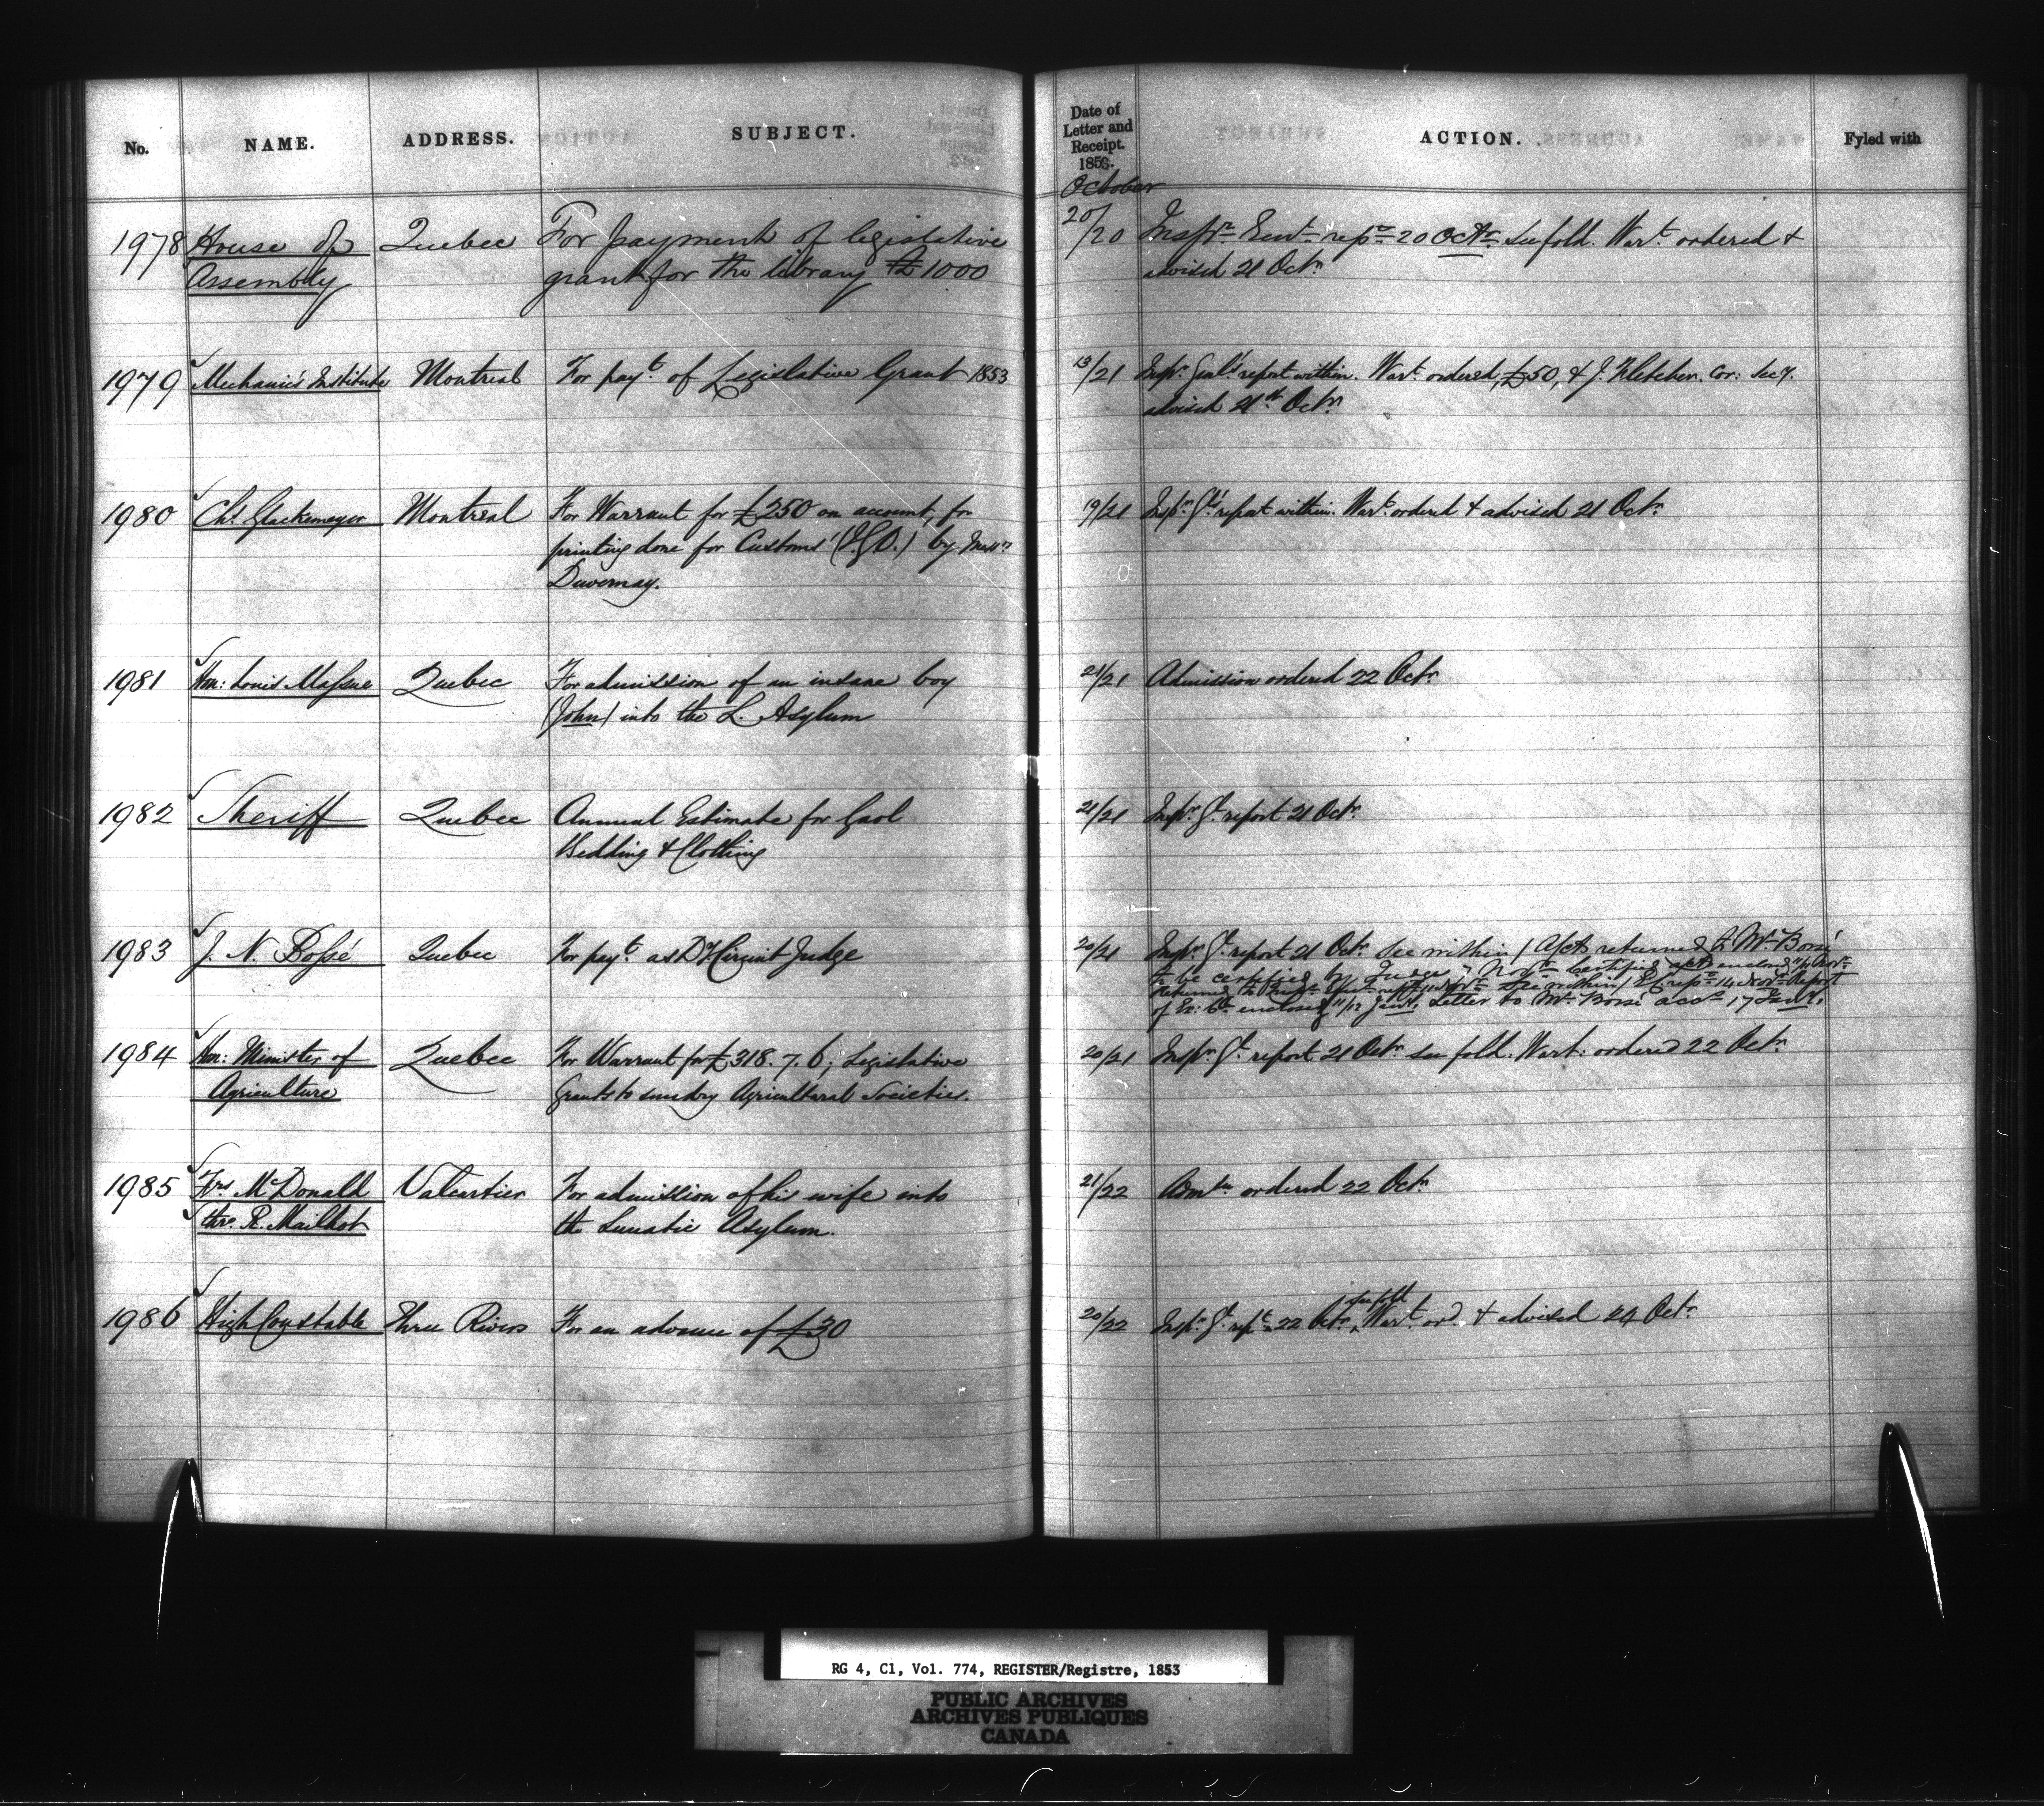 No. NAME. ADDRESS. SUBJECT.
Date of
Letter and
Receipt.
1853.
ACTION. Fyled with
October
1978 House of Quebec For payment of legislative
Assembly grant for the library £1000
20/20 Inspr Genl repd 20 Octr See fold. Wart ordered &
advised 21 Octr
1979 Mechanic's Institute Montreal For payt of Legislative Grant 1853
13/21 Inspr Genl's report within. Wart ordered, £50, & J. Fletcher. Cor: Secy.
advised 21st Octr
1980 Chs Glackemeyer Montreal For Warrant for £250 on account, for
printing done for Customs' (I.G.O.) by Messrs
Duvernay.
19/21 Inspr Gl's report within. Wart ordered & advised 21 Octr
1981 Hon: Louis Massue Quebec For admission of an insane boy
(John) into the L. Asylum
21/21 Admission ordered 22 Octr
1982 Sheriff Quebec Annual Estimate for Gaol
Bedding & Clothing
21/21 Inspr Gl report 21 Octr
1983 J. N. Bossé Quebec For payt as Dy Circuit Judge
20/21 Inspr Gl report 21 Octr See within / Accts returned to Mr Bossé
to be certified by Judge 7 Novr Certified acct enclosed 11/11 Novr
Returned to Inspr Genl 11 Novr See within / Do repd 14 Novr Report
of Ex: Co. enclosed 11/12 Jany. Letter to Mr Bossé accs 17 Jany.
1984 Hon: Minister of Quebec For Warrant for £318. 7. 6; Legislative
Agriculture Grants to sundry Agricultural Societies.
20/21 Inspr Gl report 21 Octr See fold. Wart: ordered 22 Octr
1985 Frs McDonald Valcartier For admission of his wife into
thro. R. Mailhot the Lunatic Asylum.
21/22 ordered 22 Octr
1986 High Constable Three Rivers For an advance of £30
see fold
20/22 Inspr Gl rept 22 Octr Wart ord & advised 24 Octr
RG 4, C1, Vol. 774, REGISTER/Registre, 1853
PUBLIC ARCHIVES
ARCHIVES PUBLIQUES
CANADA